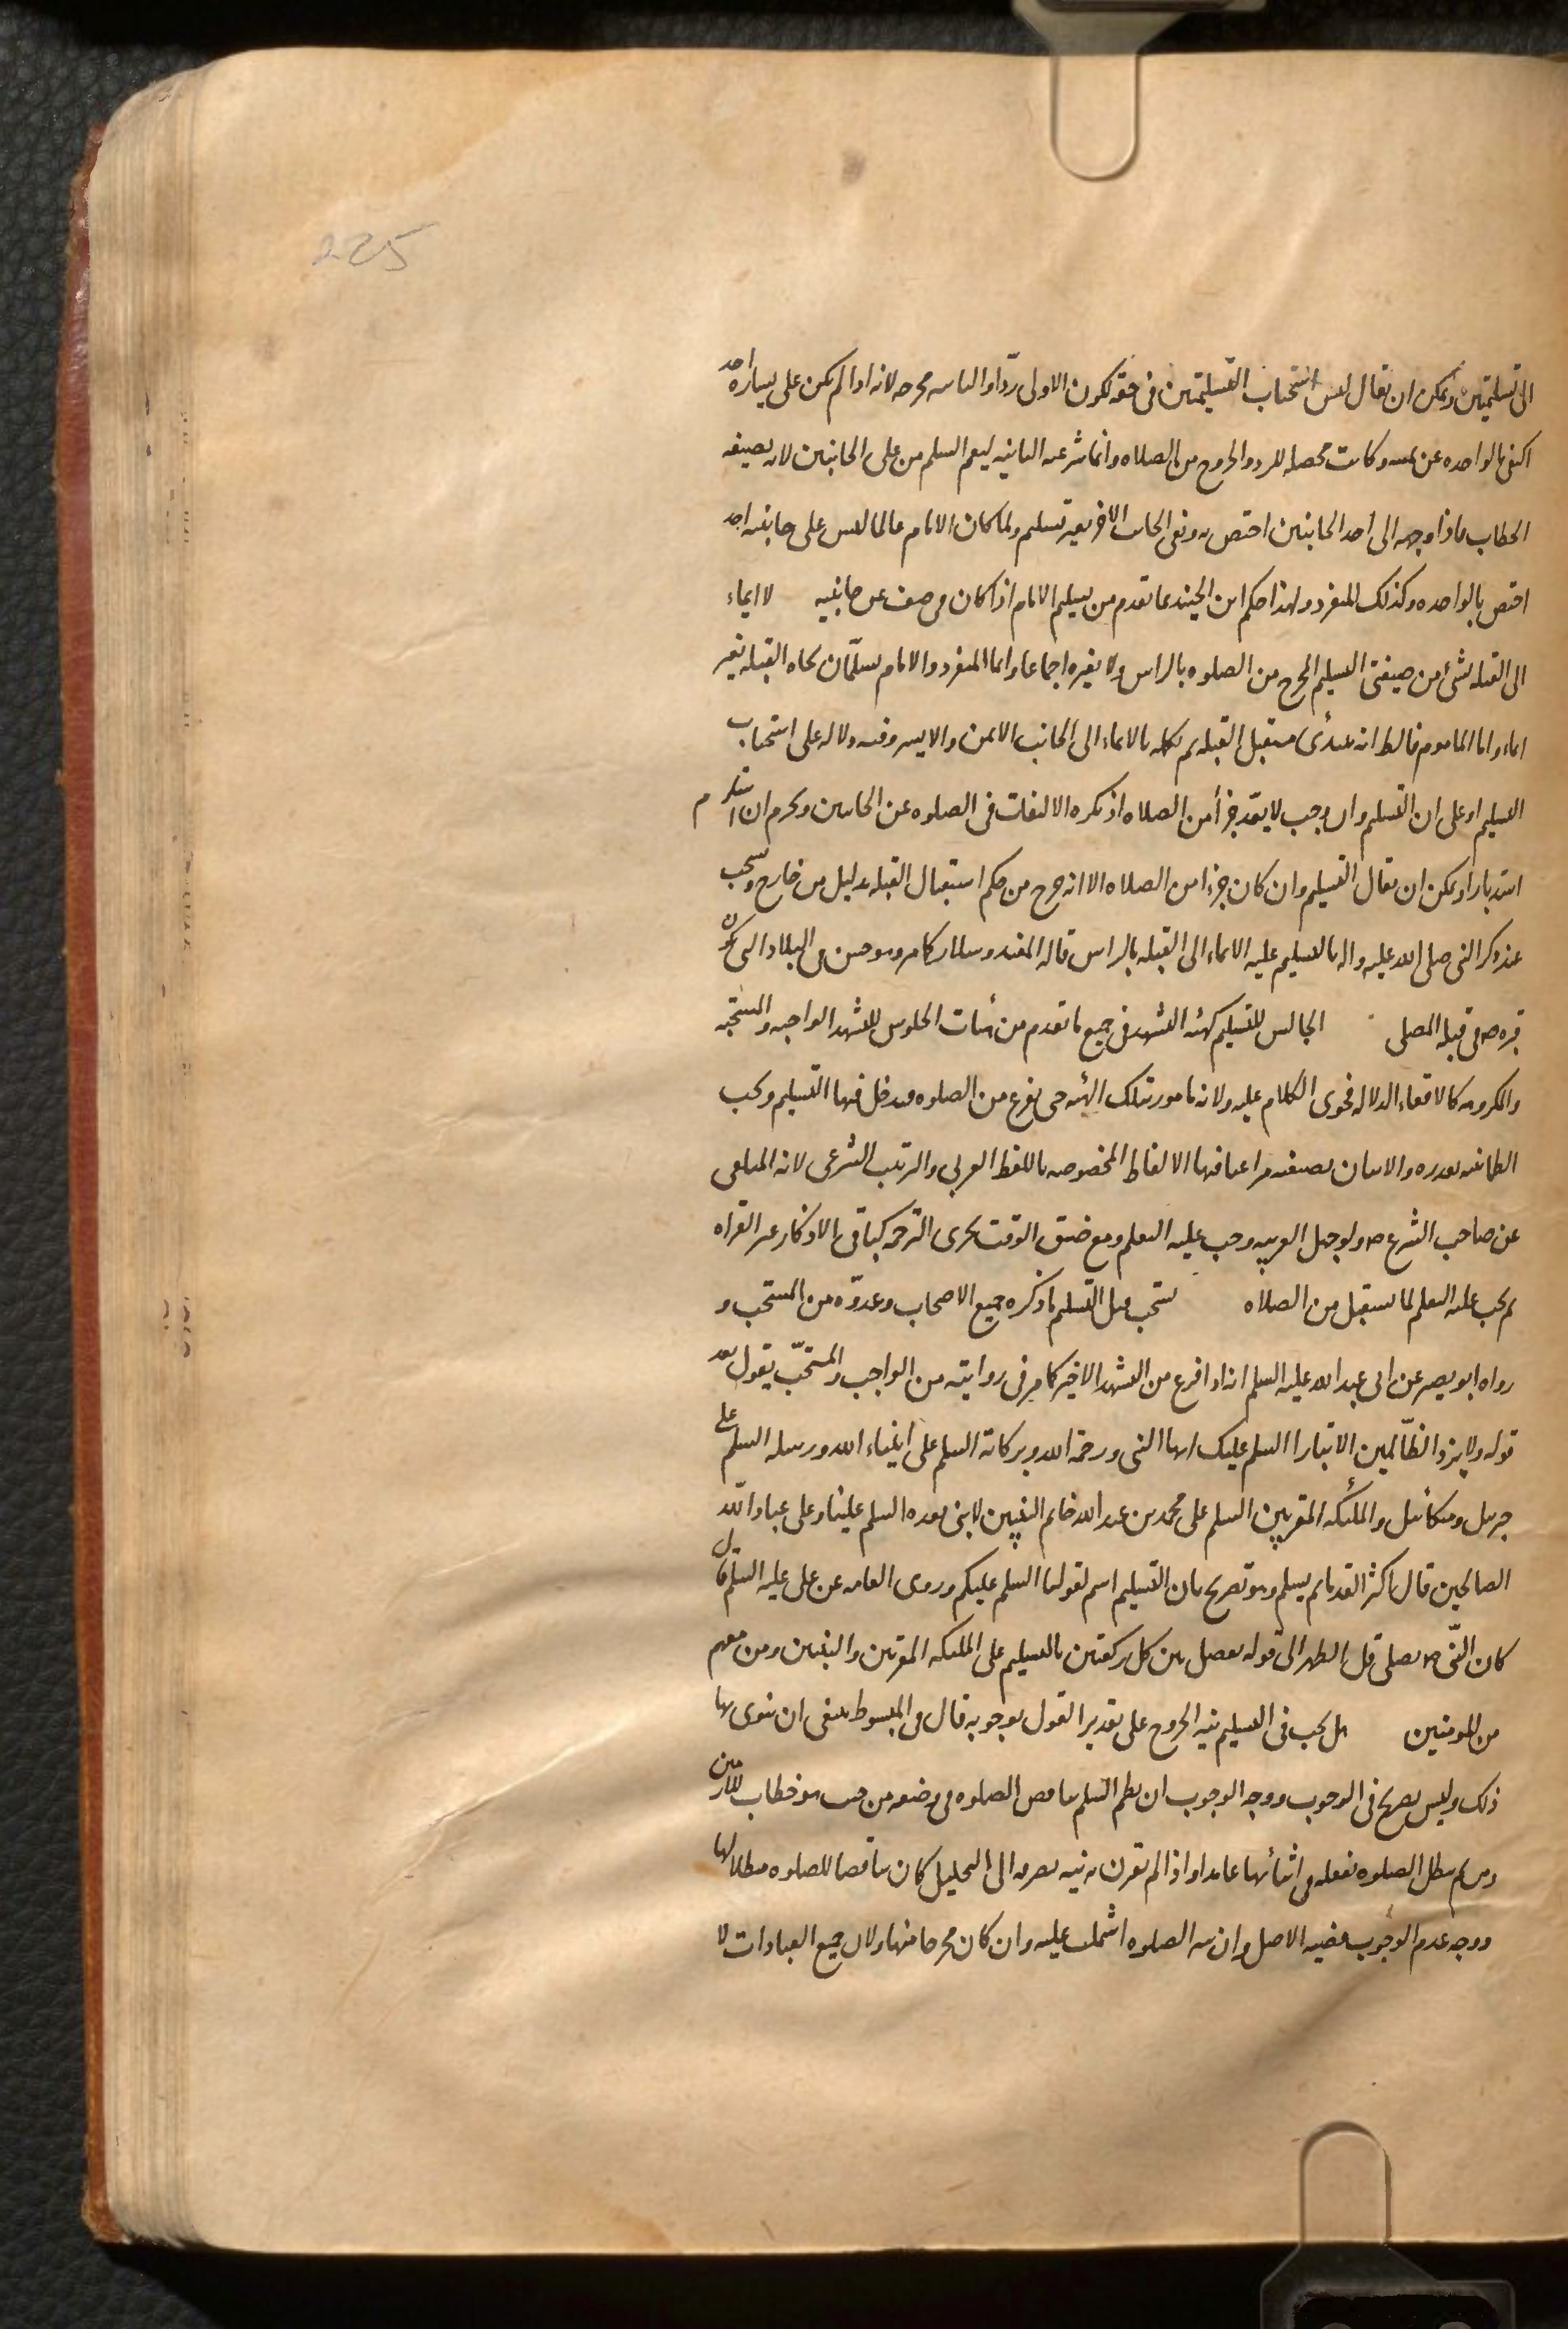 225
الى تسليمتين ويمكن ان يقال ليس استحباب التسليمتين فى حقه لكون الاولى ردّا والثانيه مخرجه لانه اذا لم يكن على يساره احد
اكتفى بالواحده عن يمينه وكانت محصله للرد والخروج من الصلاه وانما شرعيه الثانيه ليعم السلم من على الجانبين لانه بصيغه
الخطاب فاذا وجهه الى احد الجانبين اختص به وبقى الجانب الاخر بغير تسليم ولما كان الامام غالبا ليس على جانبيه احد
اختص بالواحده وكذلك المنفرد ولهذا حكم ابن الجنيد بما تقدم من تسليم الامام اذا كان فى صف عن جانبيه لا ايماء
الى القبله بشئ من صيغتى التسليم المخرج من الصلوه بالراس ولا بغيره اجماعا وانما المنفرد والامام يسلّمان تجاه القبله بغير
ايماء واما الماموم فالظ انه يبتدئ مستقبل القبله ثم يكمله بالايماء الى الجانب الايمن والايسر وفيه دلاله على استحباب
التسليم او على ان التسليم وان وجب لا يعّد جزأ من الصلاه اذ يكره الالتفات فى الصلوه عن الجانبين ويحرم ان استلزم
استدبارا ويمكن ان يقال التسليم وان كان جزءا من الصلاه الا انه خرج من حكم استقبال القبله بدليل من خارج ويستحب
عند ذكر النبى صلى الله عليه واله بالتسليم عليه الايماء الى القبله بالراس قاله المفيد وسلار كما مر وهو حسن فى البلاد التى يكون
قبره ص فى قبله المصلى الجالس للتسليم كهيئه التشهد فى جميع ما تقدم من هيئات الجلوس للتشهد الواجبه والمستحبه
والمكروهه كالاقعاء لدلاله فحوى الكلام عليه ولانه مامور بتلك الهيئه حتى يفرغ من الصلوه فيدخل فيها التسليم ويجب
الطمانينه بقدره والاتيان بصيغته مراعيا فيها الالفاظ المخصوصه باللفظ العربى والترتيب الشرعى لانه المتلقى
عن صاحب الشرع ص ولو جهل العربيه وجب عليه التعلم ومع ضيق الوقت يجزى الترجمه كباقى الاذكار غير القراه
ثم يجب عليه التعلم لما يستقبل من الصلاه يستحب قبل التسليم ما ذكره جميع الاصحاب وعدوّه من المستحب و
رواه ابو بصير عن ابى عبد الله عليه السلم انه اذا فرغ من التشهد الاخير كما مر فى روايته من الواجب والمستحبّ يقول بعد
قوله ولا يزد الظّالمين الا تبارا السلم عليك ايها النبى ورحمة الله وبركاته السلم على انبياء الله ورسله السلم على
جبريل وميكائيل والملئكه المقربين السلم على محمد بن عبد الله خاتم النبيين لا نبى بعده السلم علينا وعلى عباد الله
الصالحين قال اكثر القدما ثم يسلم وهو تصريح بان التسليم اسم لقولنا السلم عليكم وروى العامه عن على عليه السلم قال
كان النّبى ص يصلى قبل الظهر الى قوله يفصل بين كل ركعتين بالتسليم على الملئكه المقربين والنبيين ومن معهم
من المومنين هل يجب فى التسليم نيه الخروج على تقدير القول بوجوبه قال فى المبسوط ينبغى ان ينوى بها
ذلك وليس بصريح فى الوجوب ووجه الوجوب ان نظم السلم يناقض الصلوه فى وضعه من حيث هو خطاب للادميين
ومن ثم يبطل الصلوه بفعله فى اثنائها عامدا واذا لم تقرن به نيه تصرفه الى التحليل كان مناقضا للصلوه مبطلا لها
ووجه عدم الوجوب قضيه الاصل وان نيه الصلوه اشتملت عليه وان كان مخرجا منها ولان جميع العبادات لا